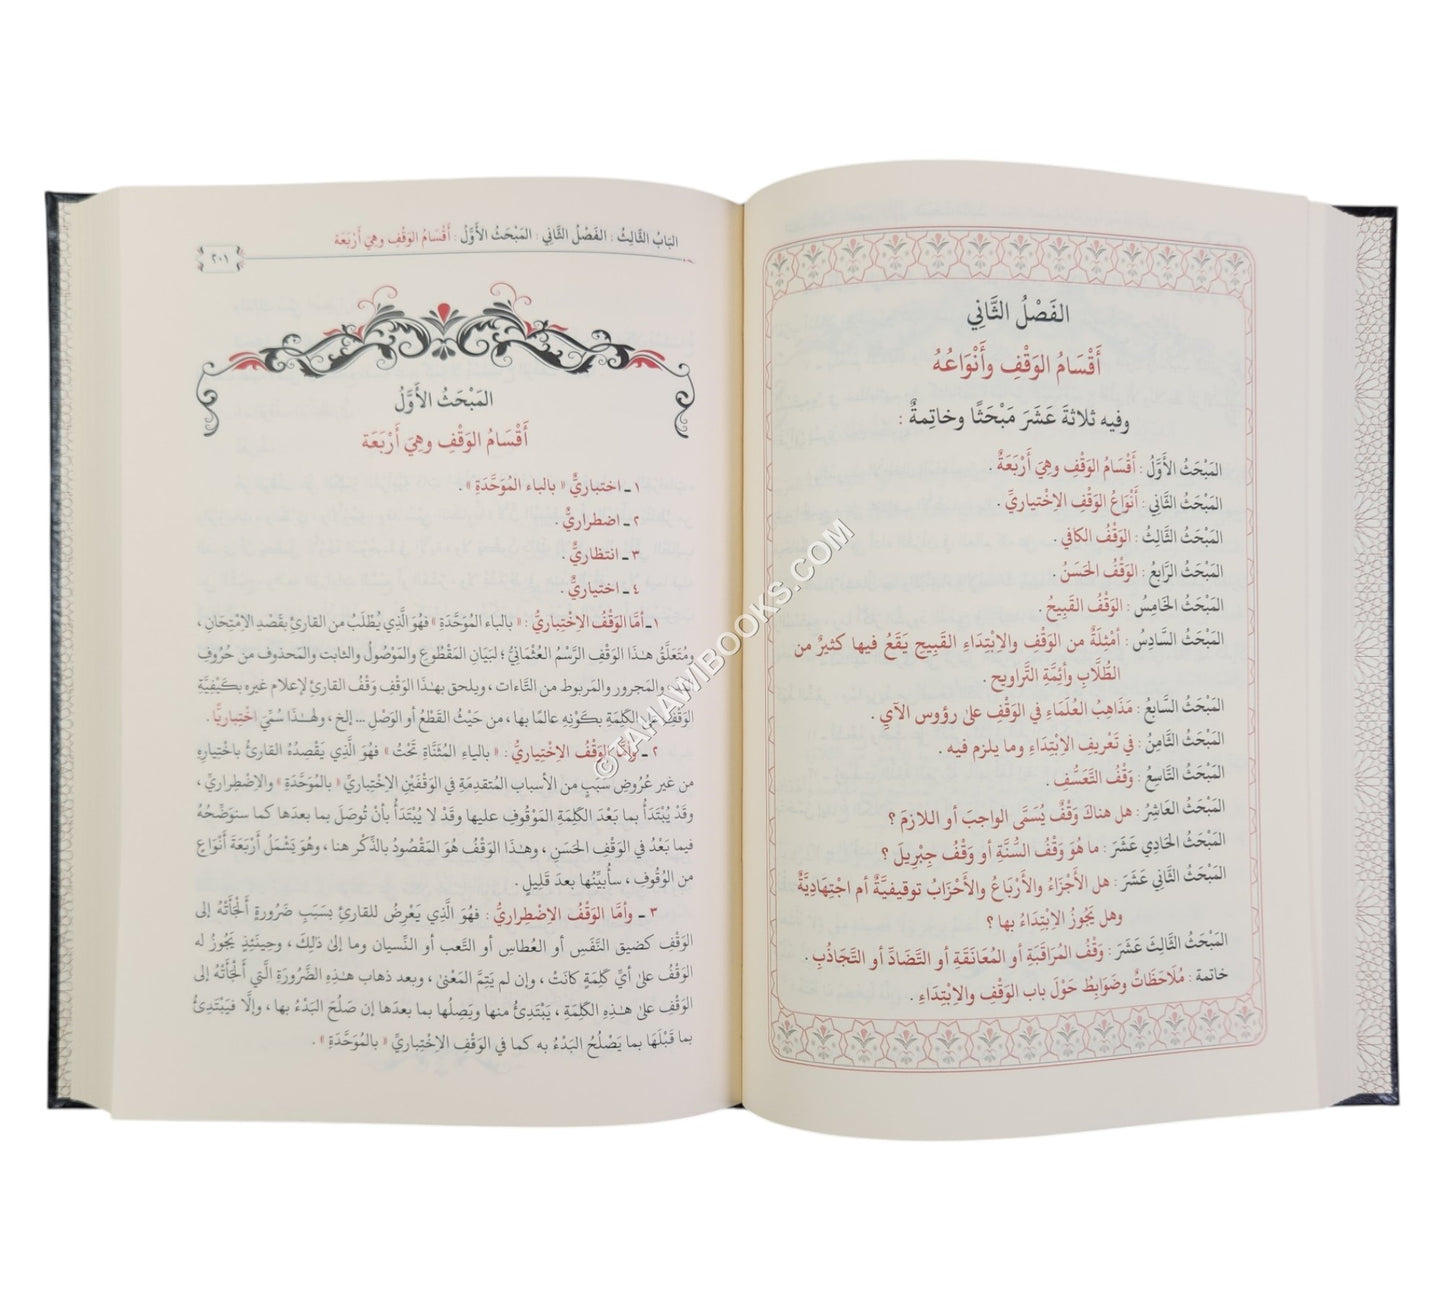 الفَصْلُ الثَّانِي
أَقْسَامُ الوَقْفِ وأَنْوَاعُهُ
وفيه ثلاثةَ عَشَرَ مَبْحَثًا وخاتِمةٌ :
المَبْحَثُ الأَوَّلُ : أَقْسَامُ الوَقْفِ وهِيَ أَرْبَعَةٌ .
المَبْحَثُ الثَّانِي : أَنْوَاعُ الوَقْفِ الاِخْتِياريِّ .
المَبْحَثُ الثَّالِثُ : الوَقْفُ الكافي .
المَبْحَثُ الرَّابِعُ : الوَقْفُ الحَسَنُ .
المَبْحَثُ الخَامِسُ : الوَقْفُ القَبِيحُ .
المَبْحَثُ السَّادِسُ : أَمْثِلَةٌ من الوَقْفِ والاِبْتِداءِ القَبِيحِ يَقَعُ فيها كثيرٌ من
الطُّلَّابِ وأئِمَّةِ التَّراويح .
المَبْحَثُ السَّابِعُ : مَذَاهِبُ العُلَمَاءِ في الوَقْفِ على رؤوس الآيِ .
المَبْحَثُ الثَّامِنُ : في تَعْريفِ الاِبْتِداءِ وما يلزم فيه .
المَبْحَثُ التَّاسِعُ : وَقْفُ التَّعَسُّفِ .
المَبْحَثُ العَاشِرُ : هل هناكَ وَقْفٌ يُسَمَّى الواجبَ أو اللازمَ ؟
المَبْحَثُ الحَادِي عَشَرَ : ما هُوَ وَقْفُ السُّنَّةِ أو وَقْفُ جِبْرِيلَ ؟
المَبْحَثُ الثَّانِي عَشَرَ : هل الأَجْزَاءُ والأَرْبَاعُ والأَحْزَابُ توقيفيَّةٌ أم اجتِهَاديَّةٌ
وهل يَجُوزُ الاِبْتِدَاءُ بها ؟
المَبْحَثُ الثَّالِثَ عَشَرَ : وَقْفُ المُرَاقَبَةِ أو المُعَانَقَةِ أو التَّضَادِّ أو التَّجَاذُبِ .
خاتمة : مُلَاحَظَاتٌ وضَوَابِطُ حَوْلَ باب الوَقْفِ والاِبْتِدَاءِ .
البَابُ الثَّالِثُ : الفَصْلُ الثَّانِي : المَبْحَثُ الأَوَّلُ : أَقْسَامُ الوَقْفِ وهِيَ أَرْبَعَة
٢٠١
المَبْحَثُ الأَوَّلُ
أَقْسَامُ الوَقْفِ وهِيَ أَرْبَعَة
١ ـ اختباريٌّ « بالباء المُوَحَّدَةِ » .
٢ ـ اضطراريٌّ .
٣ ـ انتظاريٌّ .
٤ ـ اختياريٌّ .
١ـ أمَّا الوَقْفُ الاِخْتِباريُّ : « بالباء المُوَحَّدَةِ » فهُوَ الَّذِي يُطْلَبُ من القارئِ بقَصْدِ الاِمْتِحَانِ ،
ومُتَعَلَّقُ هٰذا الوَقْفِ الرَّسْمُ العُثْمَانيُّ ؛ لبَيَانِ المَقْطُوعِ والمَوْصُولِ والثابت والمَحذوف من حُرُوفِ
والمَجرور والمَربوط من التَّاءات ، ويلحق بهٰذا الوَقْفِ وَقْفُ القارئِ لإعلام غيره بكَيْفِيَّةِ
الوَقْفِ على الكَلِمَةِ بكَوْنِهِ عالمًا بها ، من حَيْثُ القَطْعُ أو الوَصْل ... إلخ ، ولهٰذا سُمِّيَ اخْتِباريًّا .
٢ ـ وأمَّا الوَقْفُ الاِخْتِياريُّ : « بالياءِ المُثَنَّاةِ تَحْتُ » فهُوَ الَّذِي يَقْصِدُهُ القارئُ باختِيارِهِ
من غير عُرُوضِ سَبَبٍ من الأسباب المُتقدِمةِ في الوَقْفَيْنِ الاِخْتِباريِّ « بالمُوَحَّدَةِ » والاِضْطِراريِّ ،
وقَدْ يُبْتَدَأُ بما بَعْدَ الكَلِمَةِ المَوْقُوفِ عليها وقَدْ لا يُبْتَدَأُ بأنْ تُوصَلَ بما بعدها كما سنوَضِّحُهُ
فيما بَعْدُ في الوَقْفِ الحَسَنِ ، وهٰذا الوَقْفُ هُوَ المَقْصُودُ بالذِّكْرِ هنا ، وهُوَ يَشْمَلُ أَرْبَعَةَ أَنْوَاعٍ
من الوُقُوفِ ، سأُبيِّنُها بعدَ قَلِيلٍ .
٣ ـ وأمَّا الوَقْفُ الاِضْطِراريُّ : فهُوَ الَّذِي يَعْرِضُ للقارئِ بسَبَبِ ضَرُورةٍ أَلْجَأَتْهُ إلى
الوَقْفِ كضيقِ النَّفَسِ أو العُطاسِ أو التَّعب أو النِّسيان وما إلى ذٰلِكَ ، وحِينَئِذٍ يَجُوزُ له
الوَقْفُ على أيِّ كَلِمَةٍ كانَتْ ، وإن لم يَتِمَّ المَعْنىٰ ، وبعد ذهاب هٰذِهِ الضَّرُورَةِ الَّتي أَلْجَأَتْهُ إلى
الوَقْفِ على هٰذِهِ الكَلِمَةِ ، يَبْتَدِئُ منها ويَصِلُها بما بعدَها إن صَلَحَ البَدْءُ بها ، وإلَّا فيَبْتَدِئُ
بما قَبْلَها بما يَصْلُحُ البَدْءُ به كما في الوَقْفِ الاِخْتِباريِّ « بالمُوَحَّدَةِ » .
©TAHAWIBOOKS.COM